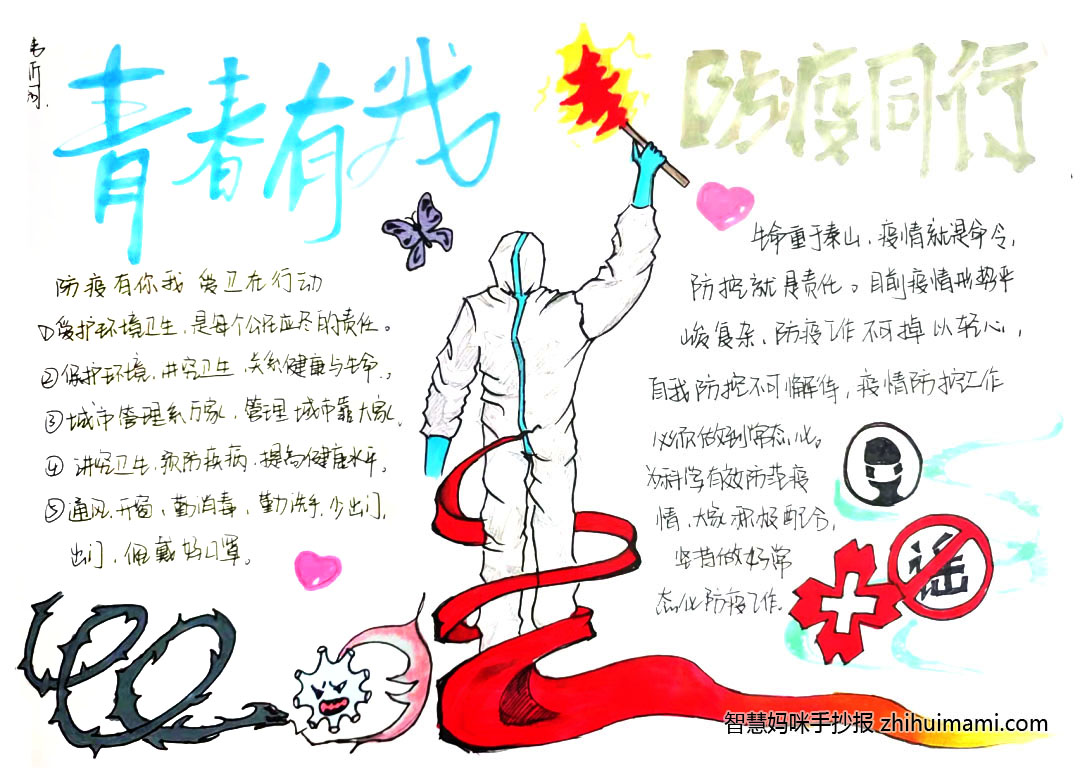 青春有我
防疫同行
防疫有你我 爱卫在行动
①爱护环境卫生，是每个公民应尽的责任。
②保护环境，讲究卫生，关系健康与生命。
③城市管理系万家，管理城市靠大家。
④讲究卫生，预防疾病，提高健康水平。
⑤通风，开窗，勤消毒，勤洗手，少出门，
出门，佩戴好口罩。
生命重于泰山，疫情就是命令，
防控就是责任。目前疫情形势严
峻复杂，防疫工作不可掉以轻心，
自我防控不可懈怠，疫情防控工作
必须做到常态化。
为科学有效防范疫
情，大家积极配合，
坚持做好常
态化防疫工作.
谣
智慧妈咪手抄报 zhihuimami.com